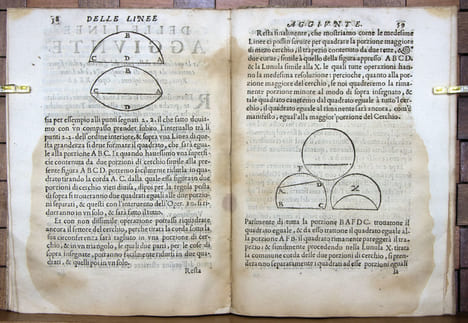 58
DELLE LINEE
B
A C
D
B
C A
D
sia per essempio alli punti segnati 2. 2. il che fatto douia-
mo con vn compasso prender subito l'interuallo trà li
punti 2. 2. dell'ordine interiore, & sopra vna Linea di que-
sta grandezza si dee formare il quadrato, che sarà egua-
le alla portione A B C. Et quando hauessimo vna superfi-
cie contenuta da due portioni di cerchio simile alla pre-
sente figura A B C D. potremo facilmente ridurla in qua-
drato tirando la corda A C. dalla quale essa figura in due
portioni di cerchio vien diuisa, dipoi per la regola posta
di sopra si troueranno due quadrati eguali alle due portio-
ni separati, & questi con l'interuento dell'Oper. si ri-
durranno in vn solo, & sarà fatto il tutto.
Et con non dissimile operatione potrassi riquadrare
ancora il settore del cerchio, perche tirata la corda sotto la
sua circonferenza sarà tagliato in vna portione di cer-
chio, & in vn triangolo, le quali due parti, per le cose di
sopra insegnate, potranno facilmente ridursi in due qua-
drati, & quelli poi in vn solo.
Resta
AGGIVNTE.
59
Resta finalmente, che mostriamo come le medesime
Linee ci possin seruire per quadrare la portione maggiore
di mezo cerchio, il trapezio contenuto da due rette, & due
curue, simile à quello della figura appresso A B C D.
& la Lunula simile alla X. le quali tutte operationi han-
no la medesima resolutione: percioche, quanto alla por-
tione maggior del cerchio, se noi quadreremo la rima-
nente portione minore al modo di sopra insegnato, &
tale quadrato cauaremo dal quadrato eguale à tutto'l cer-
chio, il quadrato eguale al rimanente sarà ancora, com'è
manifesto, egual alla maggior portione del Cerchio.
F
D
A
B C
X
Parimente di tutta la portione B A F D C. trouatone il
quadrato eguale, & da esso trattone il quadrato eguale al-
la portione A F D. il quadrato rimanente pareggerà il tra-
pezio; & similmente procedendo nella Lunula X. tirata
la comune corda delle due portioni di cerchio, si pren-
deranno separatamente i quadrati ad esse portioni eguali
la